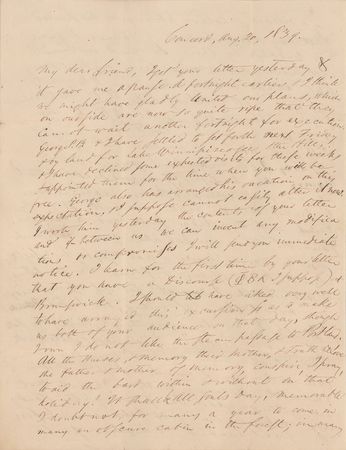 Concord, Aug. 20, 1839.
My dear friend, I got your letter yesterday &
it gave me a pause. A fortnight earlier & I think
we might have gladly united our plans, which
on our side are now so quite ripe that they
cannot wait another fortnight for execution.
George B & I have settled to set forth next Friday
by land for lake Winnipiseogee & the Hills.
& I have declined some expected visits for these weeks,
& appointed them for the time when you will be
free. George also has arranged his vacation on this
expectation, & I suppose cannot easily alter it now.
I wrote him yesterday the contents of your letter
and if between us we can invent any modifica
tions, or compromises I will send you immediate
notice. I learn for the first time by your letter
that you have a Discourse (ΦBK I suppose) at
Brunswick. I should have liked very well
to have arranged this excursion so as to make
us both of your audience on that day, though
I do not like the steam passage to Portland.
All the Muses, & Memory their Mother, & Truth
the father & mother of Memory, conspire, I pray,
to aid the bard within & without on that
holiday! It shall All souls day, memorable
I doubt not, for many a year to come in
many an obscure cabin in the forest, in many